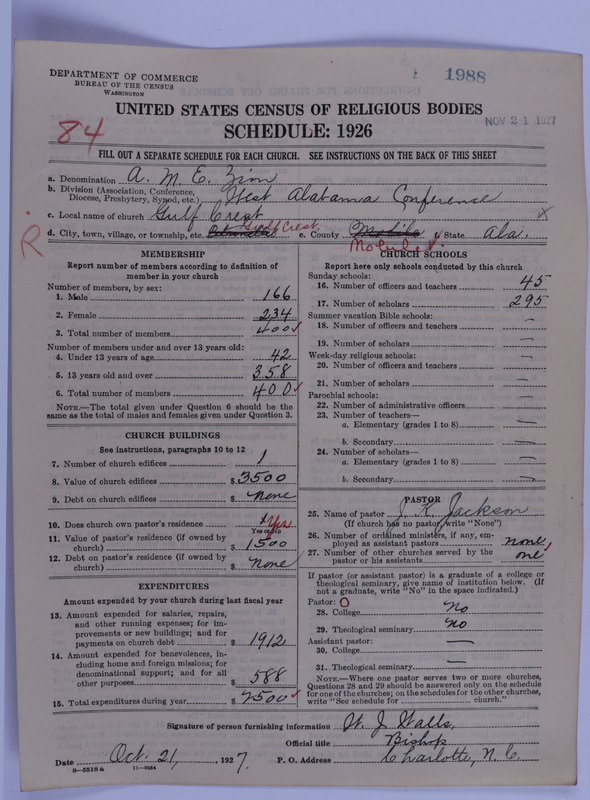 1988
DEPARTMENT OF COMMERCE
BUREAU OF THE CENSUS
WASHINGTON
UNITED STATES CENSUS OF RELIGIOUS BODIES
NOV 21 1927
SCHEDULE: 1926
84
FILL OUT A SEPARATE SCHEDULE FOR EACH CHURCH. SEE INSTRUCTIONS ON THE BACK OF THIS SHEET
a. Denomination A. M. E. Zion
b. Division (Association, Conference, Diocese, Presbytery, Synod, etc.) West Alabama Conference
c. Local name of church Gulf Crest x
d. City, town, village, or township, etc. Gulf Crest. e. County Mobile f. State Ala.
R
Mobile
MEMBERSHIP
Report number of members according to definition of
member in your church
Number of members, by sex:
1. Male 166
2. Female 234
3. Total number of members 400
Number of members under and over 13 years old:
4. Under 13 years of age 42
5. 13 years old and over 358
6. Total number of members 400
NOTE.—The total given under Question 6 should be
the same as the total of males and females given under Question 3.
CHURCH BUILDINGS
See instructions, paragraphs 10 to 12
7. Number of church edifices 1
8. Value of church edifices $3500
9. Debt on church edifices $ None
10. Does church own pastor's residence Yes
Yes or No
11. Value of pastor's residence (if owned by
church) $ 1500
12. Debt on pastor's residence (if owned by
church) $ None
EXPENDITURES
Amount expended by your church during last fiscal year
13. Amount expended for salaries, repairs,
and other running expenses; for im-
provements or new buildings; and for
payments on church debt $ 1912
14. Amount expended for benevolences, in-
cluding home and foreign missions; for
denominational support; and for all
other purposes $ 588
15. Total expenditures during year $ 2500
CHURCH SCHOOLS
Report here only schools conducted by this church
Sunday schools:
16. Number of officers and teachers 45
17. Number of scholars 295
Summer vacation Bible schools:
18. Number of officers and teachers —
19. Number of scholars —
Week-day religious schools:
20. Number of officers and teachers —
21. Number of scholars —
Parochial schools:
22. Number of administrative officers —
23. Number of teachers—
a. Elementary (grades 1 to 8) —
b. Secondary —
24. Number of scholars—
a. Elementary (grades 1 to 8) —
b. Secondary —
PASTOR
25. Name of pastor J. K. Jackson
(If church has no pastor, write "None")
26. Number of ordained ministers, if any, em-
ployed as assistant pastors none
27. Number of other churches served by the
pastor or his assistants one
If pastor (or assistant pastor) is a graduate of a college or
theological seminary, give name of institution below. (If
not a graduate, write "No" in the space indicated.)
Pastor: O
28. College No
29. Theological seminary No
Assistant pastor:
30. College —
31. Theological seminary —
NOTE.—Where one pastor serves two or more churches,
Questions 28 and 29 should be answered only on the schedule
for one of the churches; on the schedules for the other churches,
write "See schedule for church."
Signature of person furnishing information W. J. Walls,
Official title Bishop
Date Oct. 21, 1927. P. O. Address Charlotte, N. C.
8—5518a 11—9984